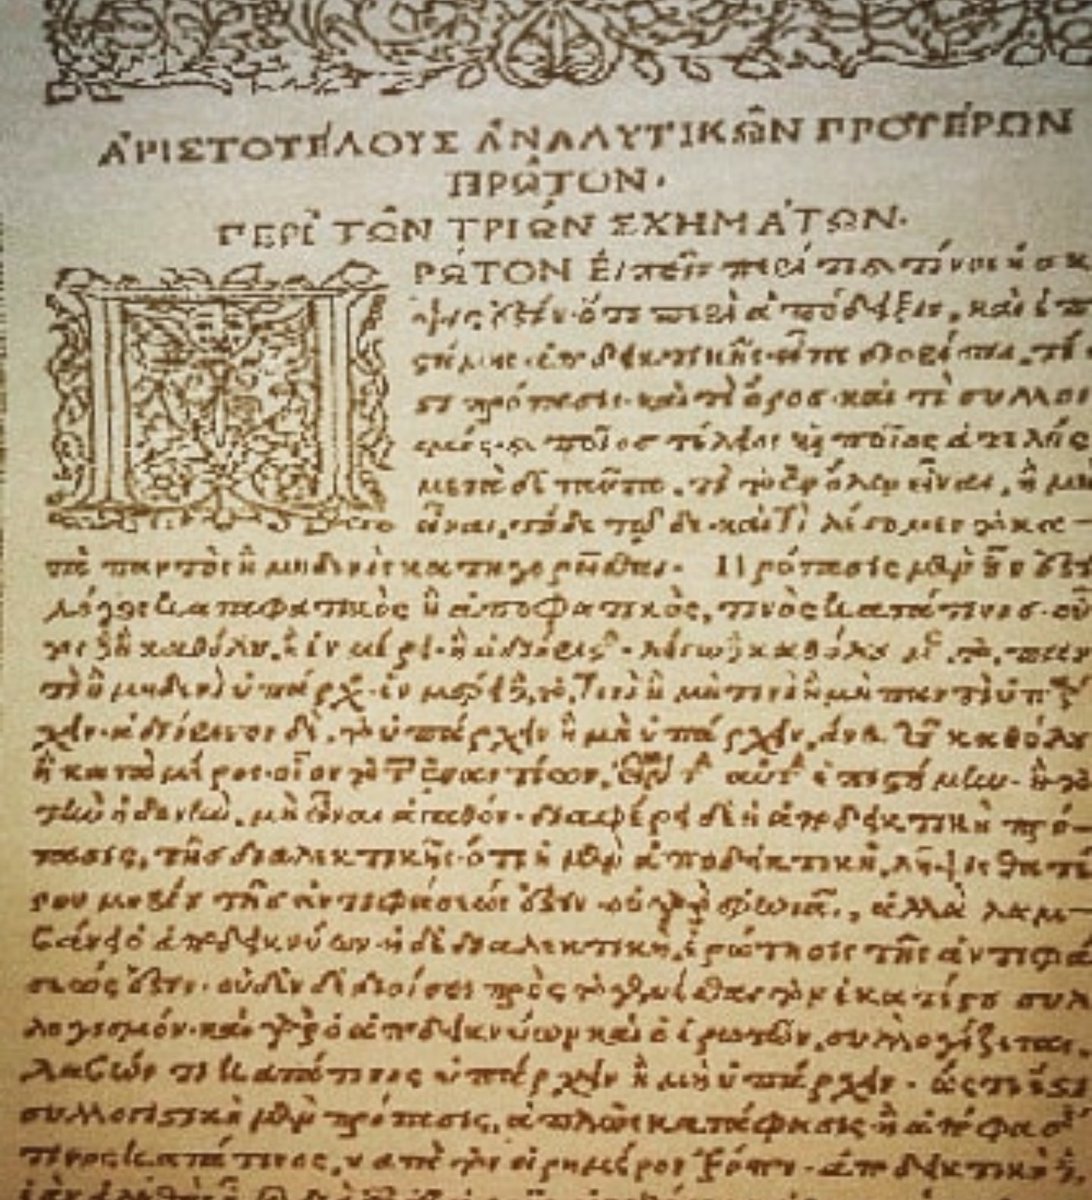 ΑΡΙΣΤΟΤΕΛΟΥΣ ΑΝΑΛΥΤΙΚΩΝ ΠΡΟΤΕΡΩΝ
ΠΡΩΤΟΝ.
ΠΕΡΙ ΤΩΝ ΤΡΙΩΝ ΣΧΗΜΑΤΩΝ.
ΠΡΩΤΟΝ Ε᾿ιπεῖν περὶ τι καὶ τίνος ἡ σκ
ψις ὅτι περὶ ἀπόδειξιν, καὶ ἐπι
στήμης ἀποδεικτικῆς εἶτα διορίσαι, τί
στι πρότασις καὶ τί ὅρος καὶ τί συλλογι
σμός καὶ ποῖος τέλειος καὶ ποῖος ἀτελής
μετὰ δὲ ταῦτα, τί τὸ ἐν ὅλῳ εἶναι, ἢ μὴ
εἶναι, τόδε τῷδε καὶ τί λέγομεν τὸ κα
τὰ παντὸς ἢ μηδενὸς κατηγορεῖσθαι. Πρότασις μὲν οὖν ἐστὶ
λόγος καταφατικὸς ἢ ἀποφατικὸς, τινὸς κατά τινος
ἢ καθόλου, ἢ ἐν μέρει ἢ ἀδιόριστος λέγω καθόλου μὲν, τὸ, παν
τὶ ἢ μηδενὶ ὑπάρχειν ἐν μέρει δὲ, τὸ, τινὶ ἢ μὴ τινὶ ἢ μὴ παντὶ ὑπάρ
χειν ἀδιόριστον δὲ, τὸ ὑπάρχειν ἢ μὴ ὑπάρχειν, ἄνευ τοῦ καθόλου
ἢ κατὰ μέρος οἷον τὸ τῶν ἐναντίων, εἶναι τὴν αὐτὴν ἐπιστήμην ἢ τὸ
τὴν ἡδονὴν, μὴ εἶναι ἀγαθόν διαφέρει δὲ ἡ ἀποδεικτικὴ πρό
τασις, τῆς διαλεκτικῆς ὅτι ἡ μὲν ἀποδεικτικὴ, λῆψις θατέ
ρου μορίου τῆς ἀντιφάσεώς ἐστιν οὐ γὰρ ἐρωτᾷ, ἀλλὰ λαμ
βάνει ὁ ἀποδεικνύων ἡ δὲ διαλεκτικὴ, ἐρώτησις τῆς ἀντιφά
σεώς ἐστιν. οὐδὲν δὲ διοίσει πρὸς τὸ γενέσθαι τὸν ἑκατέρου συλ
λογισμόν καὶ γὰρ ὁ ἀποδεικνύων καὶ ὁ ἐρωτῶν, συλλογίζεται,
λαβών τι κατά τινος ὑπάρχειν ἢ μὴ ὑπάρχειν. ὥστε ἔσται
συλλογιστικὴ μὲν πρότασις, ἁπλῶς κατάφασις ἢ ἀπόφασίς
τινος κατά τινος, τὸν εἰρημένον τρόπον. ἀποδεικτικὴ δὲ